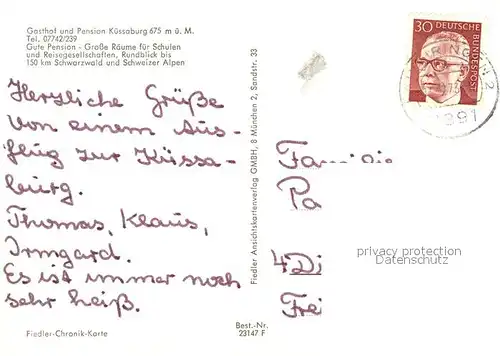 Gasthof und Pension Küssaburg 675 m ü. M.
Tel. 07742/239
Gute Pension - Große Räume für Schulen
und Reisegesellschaften, Rundblick bis
150 km Schwarzwald und Schweizer Alpen
Herzliche Grüße
von einem Aus-
flug zur Küssa-
burg.
Thomas, Klaus,
Irmgard.
Es ist immer noch
sehr heiß.
Fiedler-Chronik-Karte
Fiedler Ansichtskartenverlag GMBH, 8 München 2, Sandstr. 33
Best.-Nr.
23147 F
30 DEUTSCHE
BUNDESPOST
7891
Familie
Pa
4Di
Frei
privacy protection
Datenschutz